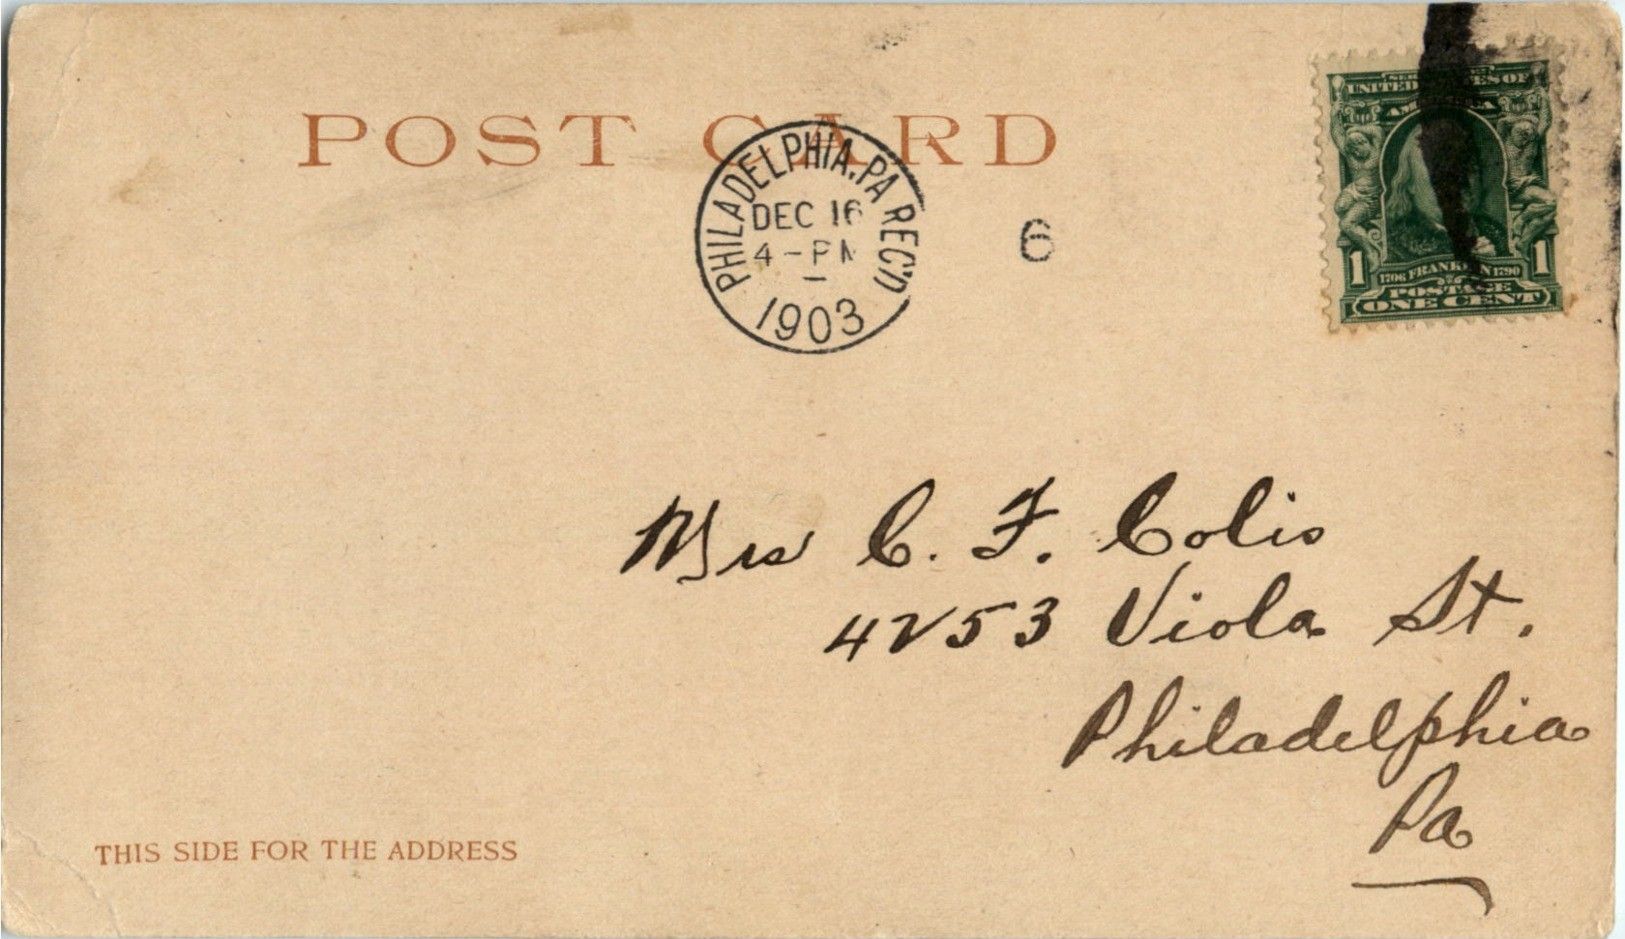 POST CARD
PHILADELPHIA, PA. REC'D
DEC 16
4-PM
1903
6
SERIES 1902
UNITED STATES OF
AMERICA
1 1
1706 FRANKLIN 1790
POSTAGE
ONE CENT
Mrs C. F. Colis
4253 Viola St.
Philadelphia
Pa
THIS SIDE FOR THE ADDRESS